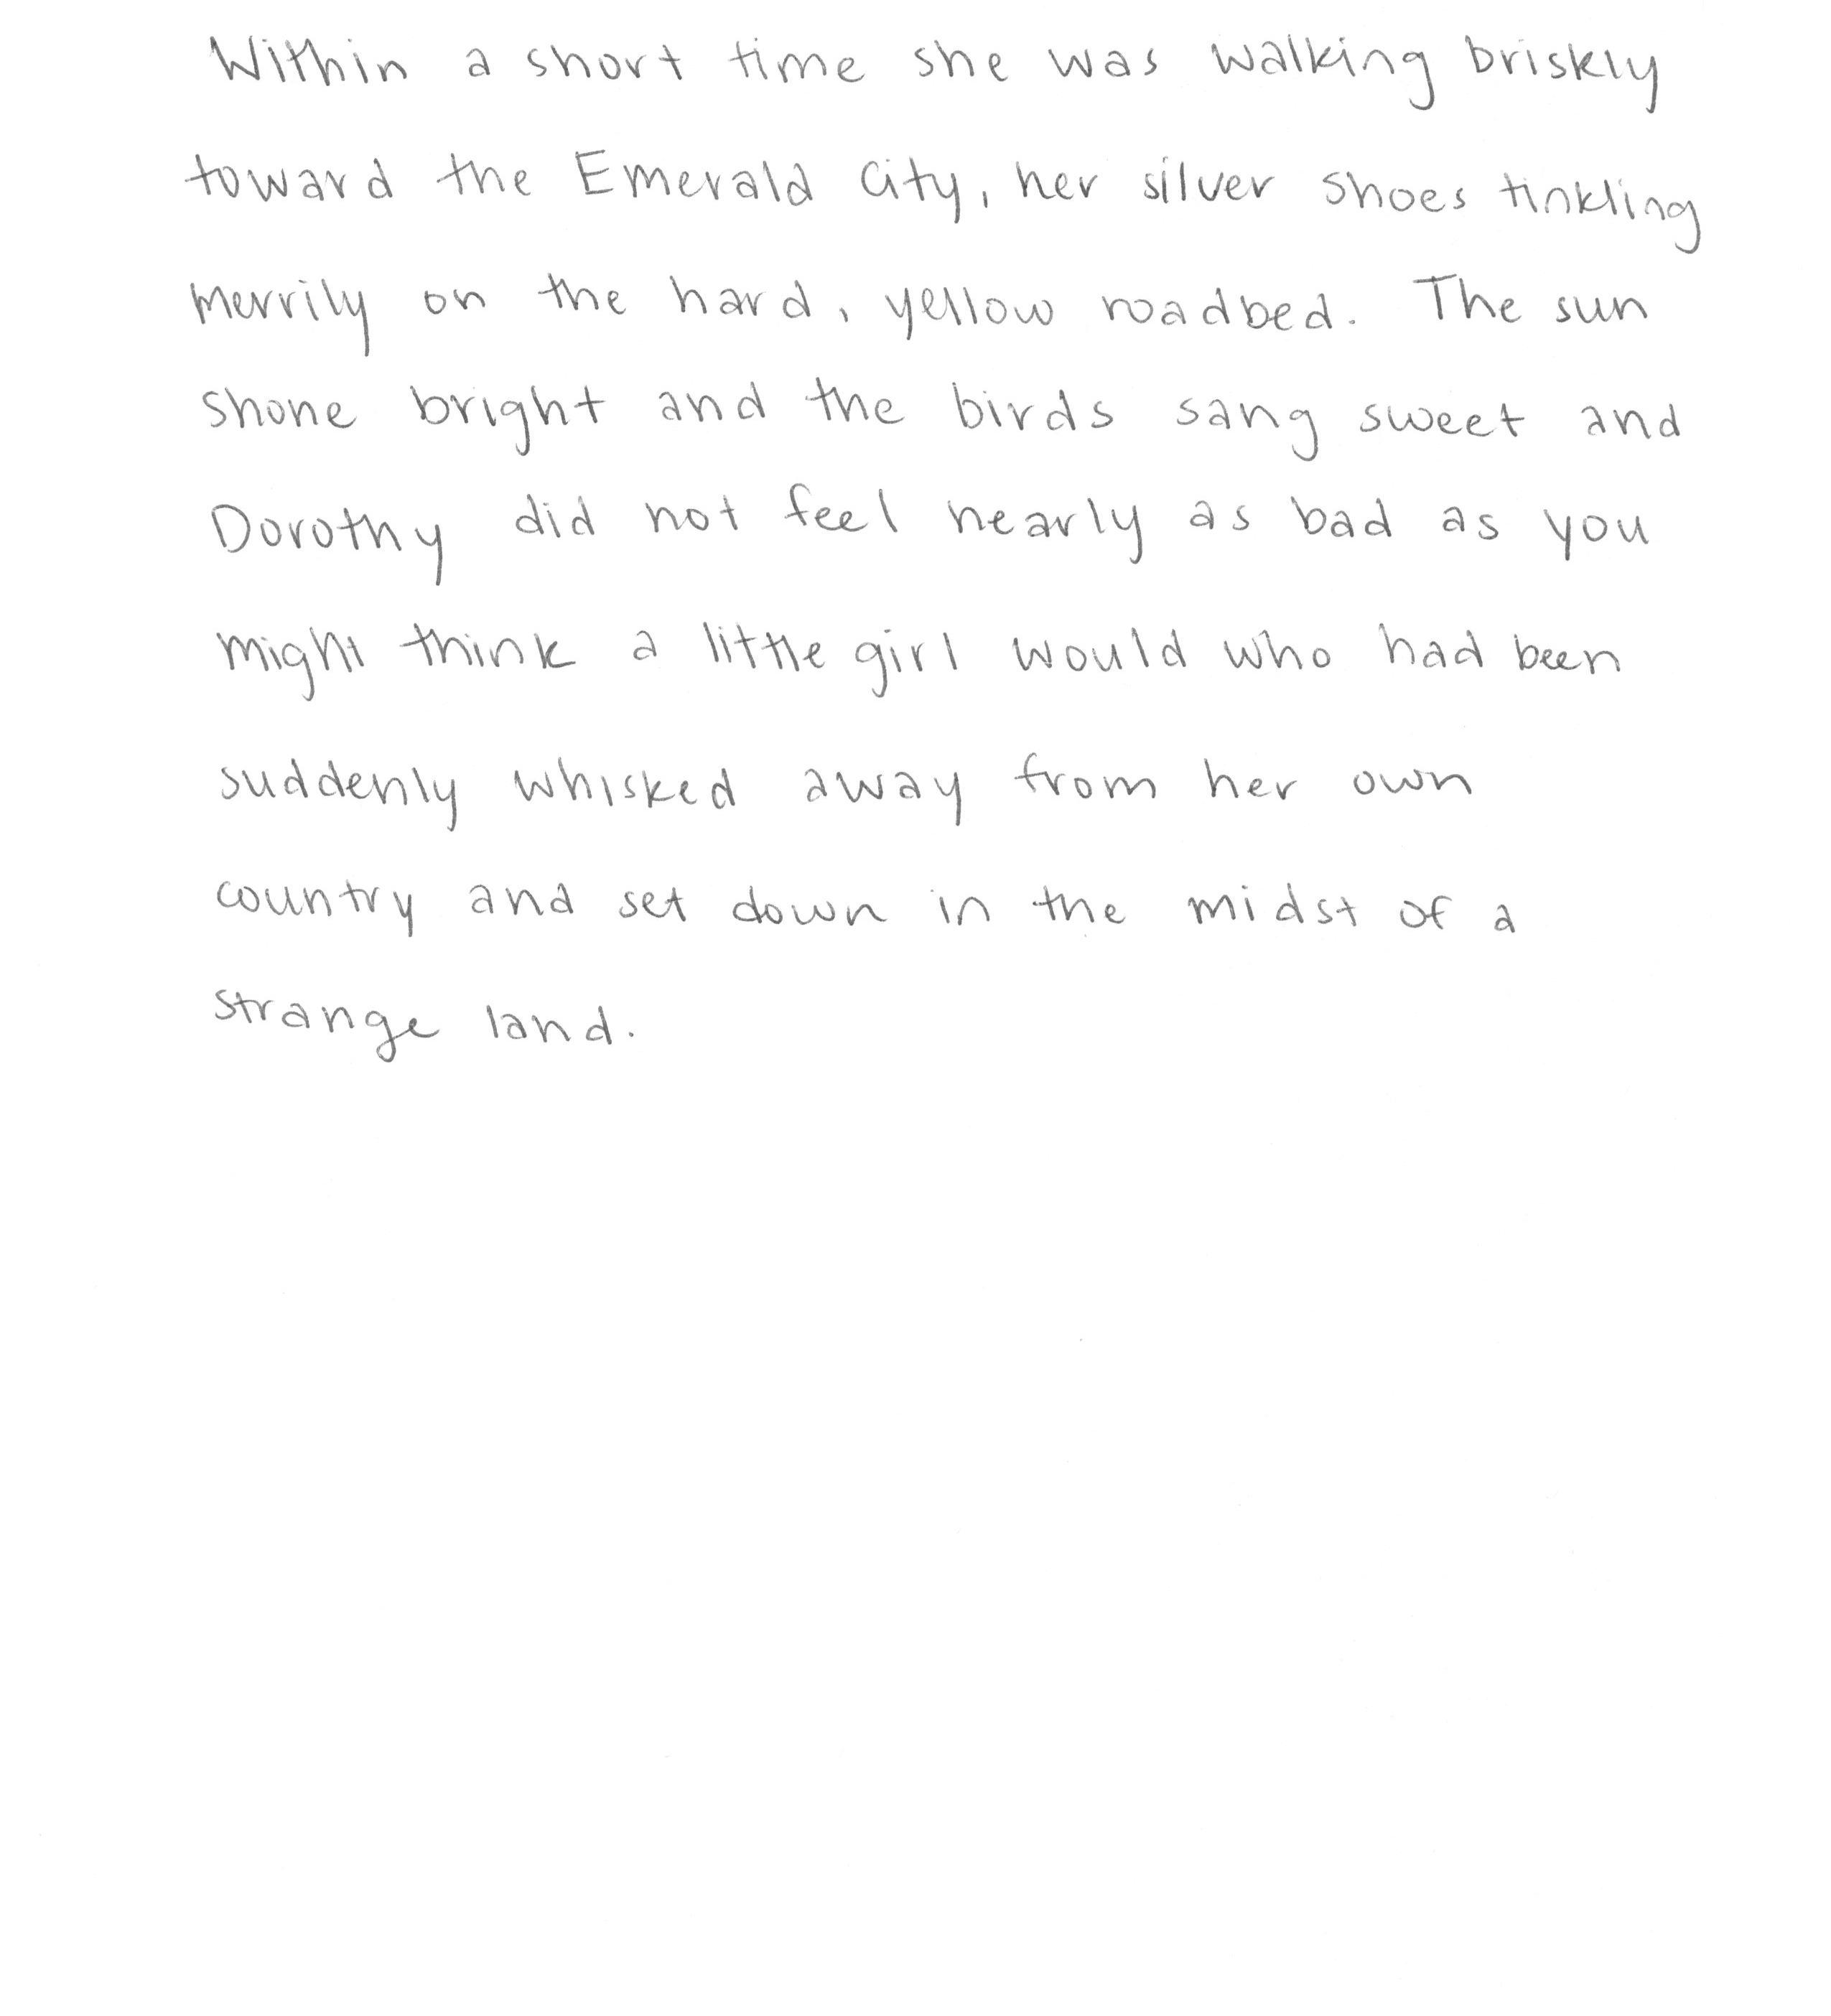 Within a short time she was walking briskly
toward the Emerald City, her silver shoes tinkling
merrily on the hard, yellow roadbed. The sun
shone bright and the birds sang sweet and
Dorothy did not feel nearly as bad as you
might think a little girl would who had been
suddenly whisked away from her own
country and set down in the midst of a
strange land.